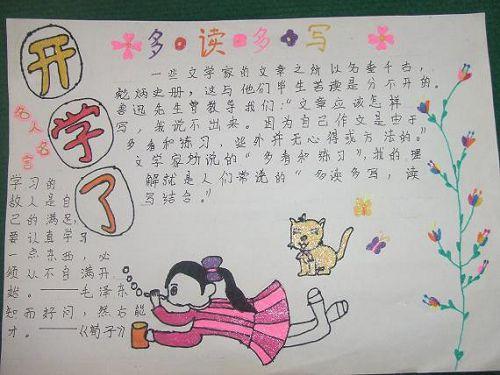 开学了
多读多写
一些文学家的文章之所以名垂千古，
乾炳史册，这与他们毕生苦读是分不开的。
鲁迅先生曾教导我们：“文章应该怎样
写，我说不出来。因为自己作文是由于
多看和练习，些外并无心得或方法的。”
文学家们说的“多看和练习”，我的理
解就是人们常说的“多读多写，读
写结合。”
名人名言
学习的
敌人是自
己的满足，
要认真学习
一点东西，必
须从不自满开
始。——毛泽东
知而好问，然后能
才。——《荀子》